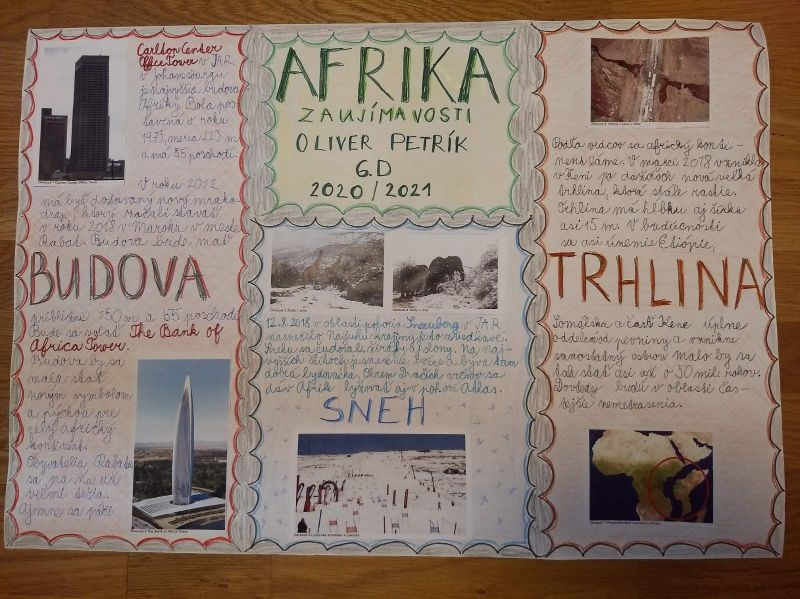 Carlton Center
Office Tower v JAR
v Johanesburgu
je najvyššia budova
Afriky. Bola pos-
tavená v roku
1973, meria 223 m
a má 55 poschodí.
V roku 2012
má byť dostavaný nový mrako-
drap, ktorý začali stavať
v roku 2018 v Maroku v meste
Rabat. Budova bude mať
BUDOVA
približne 250 m a 55 poschodí.
Bude sa volať The Bank of
Africa Tower.
Budova by sa
mala stať
novým symbolom
a pýchou pre
celý africký
kontinent.
Obyvatelia Rabatu
sa na nej už
veľmi tešia.
Aj mne sa páči
AFRIKA
ZAUJÍMAVOSTI
OLIVER PETRÍK
6.D
2020/2021
12.8.2018 v oblasti pohoria Sneeuberg v JAR
nasnežilo. Na juhu krajiny je to nezvyklé.
Sneh si užívali žirafy a slony. Na naj-
vyšších
dobrá lyžovačka. Okrem Dračích vrchov sa
dá v Afrike lyžovať aj v pohorí Atlas.
SNEH
Podľa vedcov sa africký konti-
nent láme. V marci 2018 vznikla
v Keni po dažďoch nová veľká
trhlina, ktorá stále rastie.
Trhlina má hĺbku aj šírku
asi 15 m. V budúcnosti
sa asi územie Etiópie,
TRHLINA
Somálska a časť Kene úplne
oddelia od pevniny a vznikne
samostatný ostrov. Malo by sa
tak stať asi až o 50 mil. rokov.
Dovtedy budú v oblasti čas-
tejšie zemetrasenia.